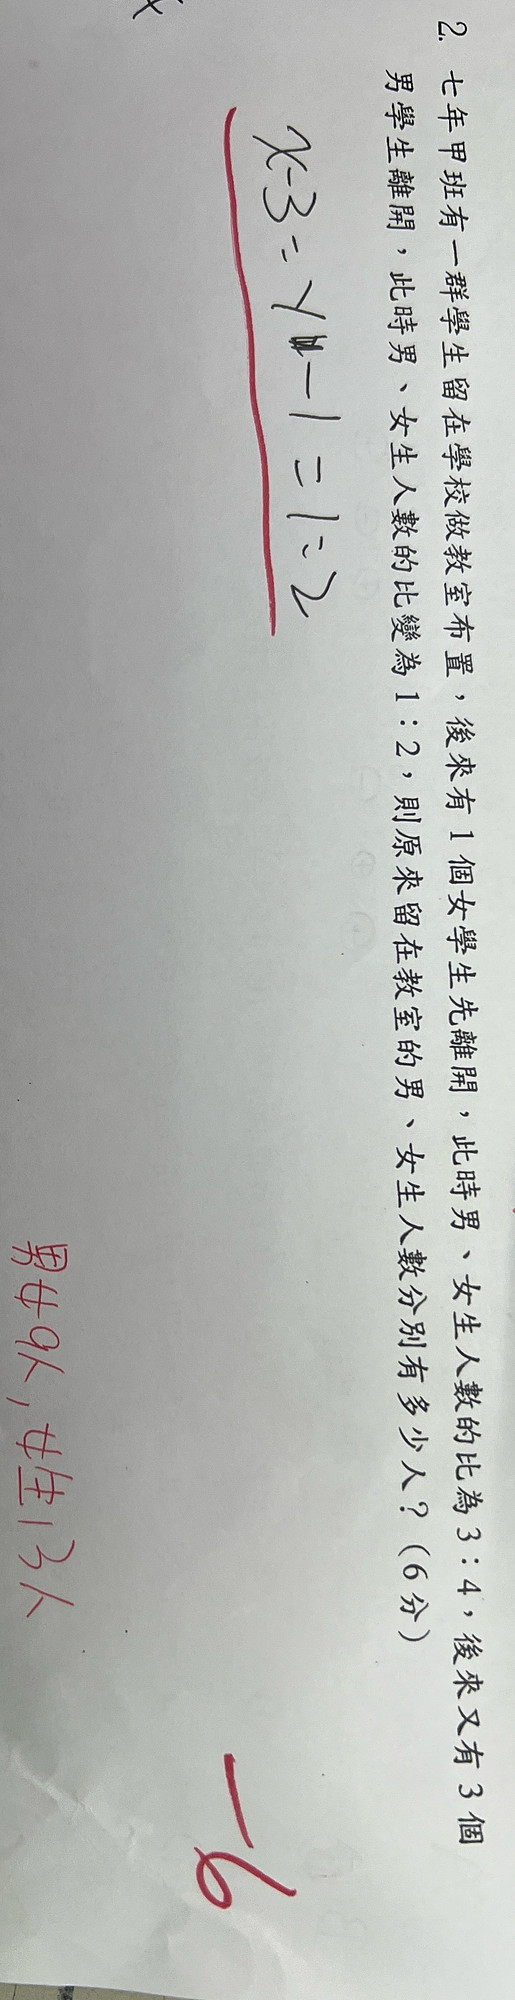 2. 七年甲班有一群學生留在學校做教室布置，後來有1個女學生先離開，此時男、女生人數的比為3：4，後來又有3個
男學生離開，此時男、女生人數的比變為1：2，則原來留在教室的男、女生人數分別有多少人？(6分)
x-3:y-1=1:2
男生9人,女生13人
-6